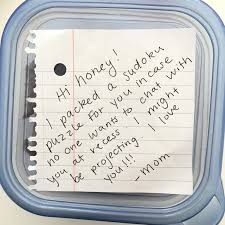 Hi honey!
I packed a sudoku
puzzle for you in case
no one wants to chat with
you at recess. I might
be projecting. I love
you!!!
-Mom